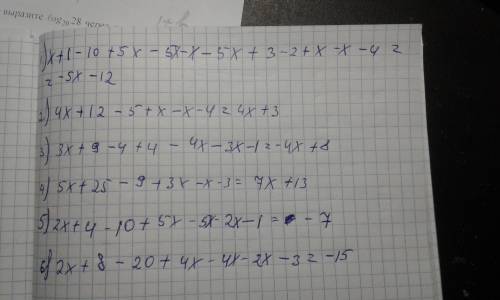 выразите log₃₀ 28 через
1) x+1-10+5x-5x-x-5x+3-2+x-x-4=
=-5x-12
2) 4x+12-5+x-x-4=4x+3
3) 3x+9-4+4-4x-3x-1=-4x+8
4) 5x+25-9+3x-x-3=7x+13
5) 2x+4-10+5x-5x-2x-1=-7
6) 2x+8-20+4x-4x-2x-3=-15